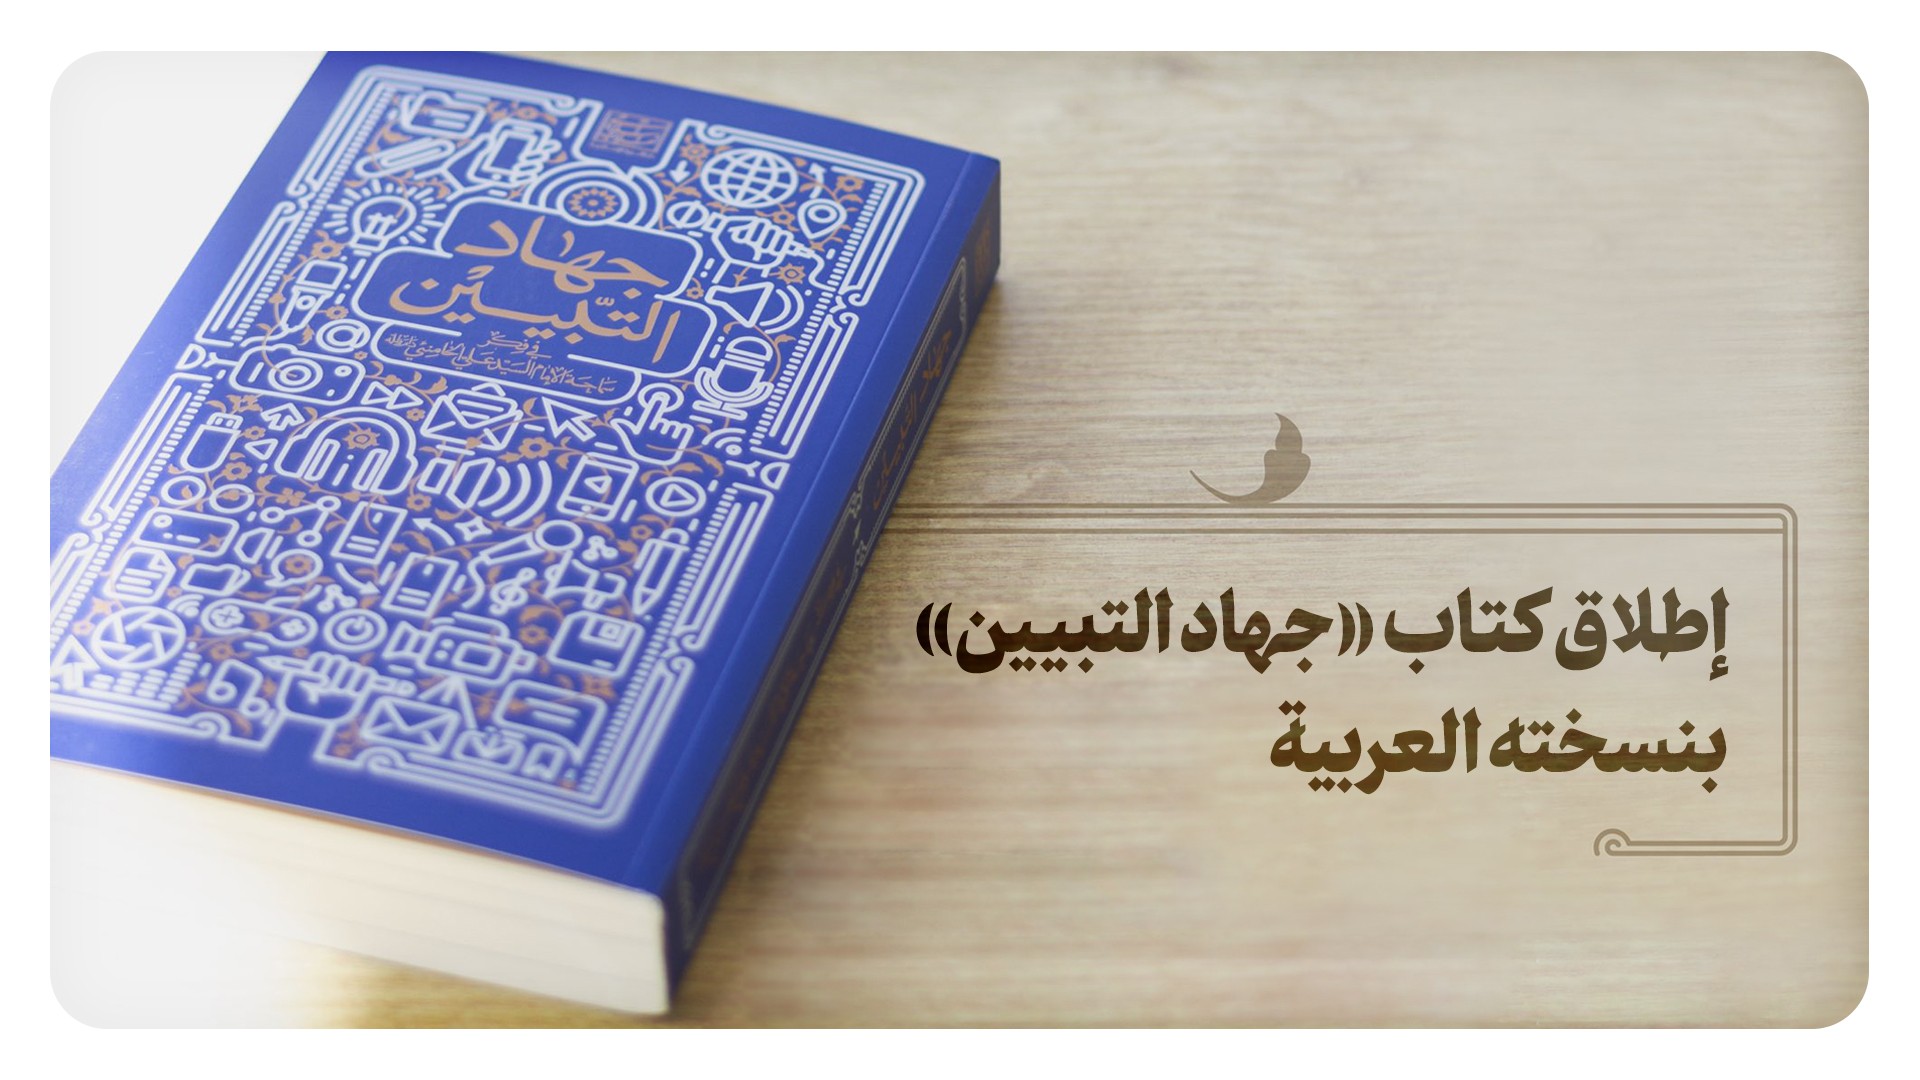 جهاد
التبيين
في فكر
سماحة الإمام السيد علي الخامنئي
إطلاق كتاب «جهاد التبيين»
بنسخته العربية